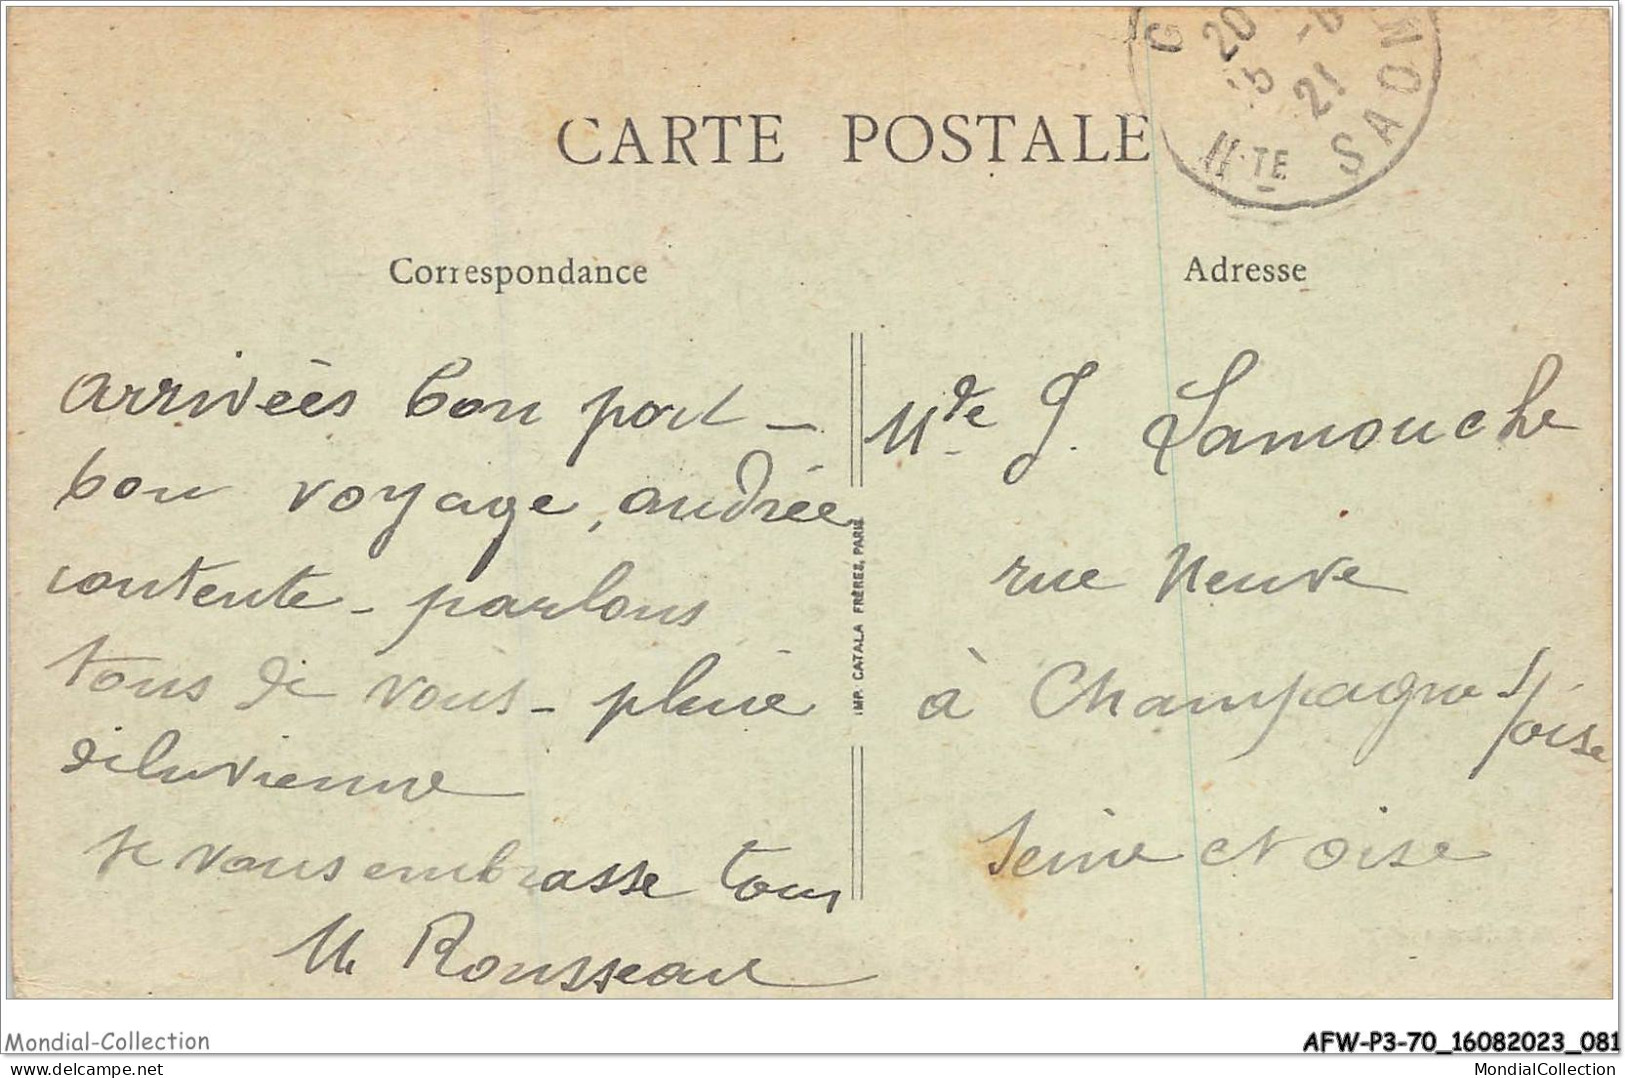 G 20 -6
15 21
Hte SAONE
CARTE POSTALE
Correspondance
Adresse
arrivées bon port -
bon voyage, andrée
contente - parlons
tous de vous - pluie
diluvienne
Je vous embrasse tous
M. Rousseau
IMP. CATALA FRÈRES, PARIS
Mde J. Lamouche
rue Neuve
à Champagne s/oise
Seine et Oise
Mondial-Collection
AFW-P3-70_16082023_081
delcampe.net
MondialCollection